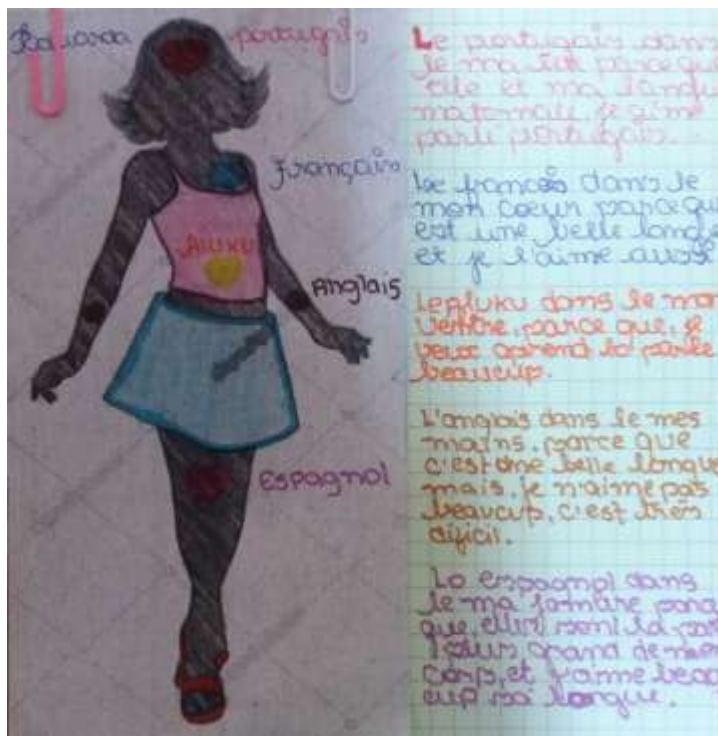 português
Français
ALUKU
Anglais
Espagnol
Le portugais dans
le ma tet parceque
elle et ma langu
matornale, je aime
parle portugais.
Le francais dans le
mon coeur parce que
est une belle longue
et je l'aime aussi
Le Aluku dans le mon
ventre, parce que, je
veux aprend la parle
beaucup.
L'anglais dans le mes
mains, parce que
c'est une belle longue
mais, je n'aime pas
beaucup, c'est très
dificil.
Lo espagnol dans
le ma jamare parce
que, elles sont la par
plus grand de mon
corps, et j'aime beau
cup sa longue.